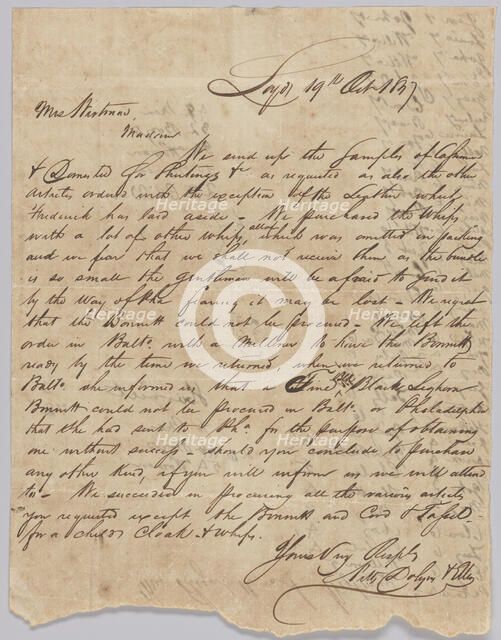 19th Oct 1837
Mrs
Madam
We send up the Samples of
& Domestic for Sheetings &c as requested as also the other
articles ordered with the exception of the Leather which
Frederick has laid aside - We purchased the Whips
with a lot of other Whips all of which was omitted in packing
and we fear that we shall not receive them as the bundle
is so small the Gentleman will be afraid to send it
by the Way of the fearing it may be lost - We regret
that the Bonnett could not be procured - We left the
order in Balto. with a Milliner to have the Bonnett
ready by the time we returned, when we returned to
Balto. she informed us that a Black Leghorn
Bonnett could not be procured in Balto. or Philadelphia
that she had sent to Pha. for the purpose of obtaining
one without success - should you conclude to purchase
any other kind, if you will inform us we will attend
to - We succeeded in procuring all the various articles
you requested except the Bonnett and Cord & Tassel
for a childs Cloak & Whips.
Yours Very Resply
Heritage
Heritage
Heritage
Heritage
Heritage
Heritage